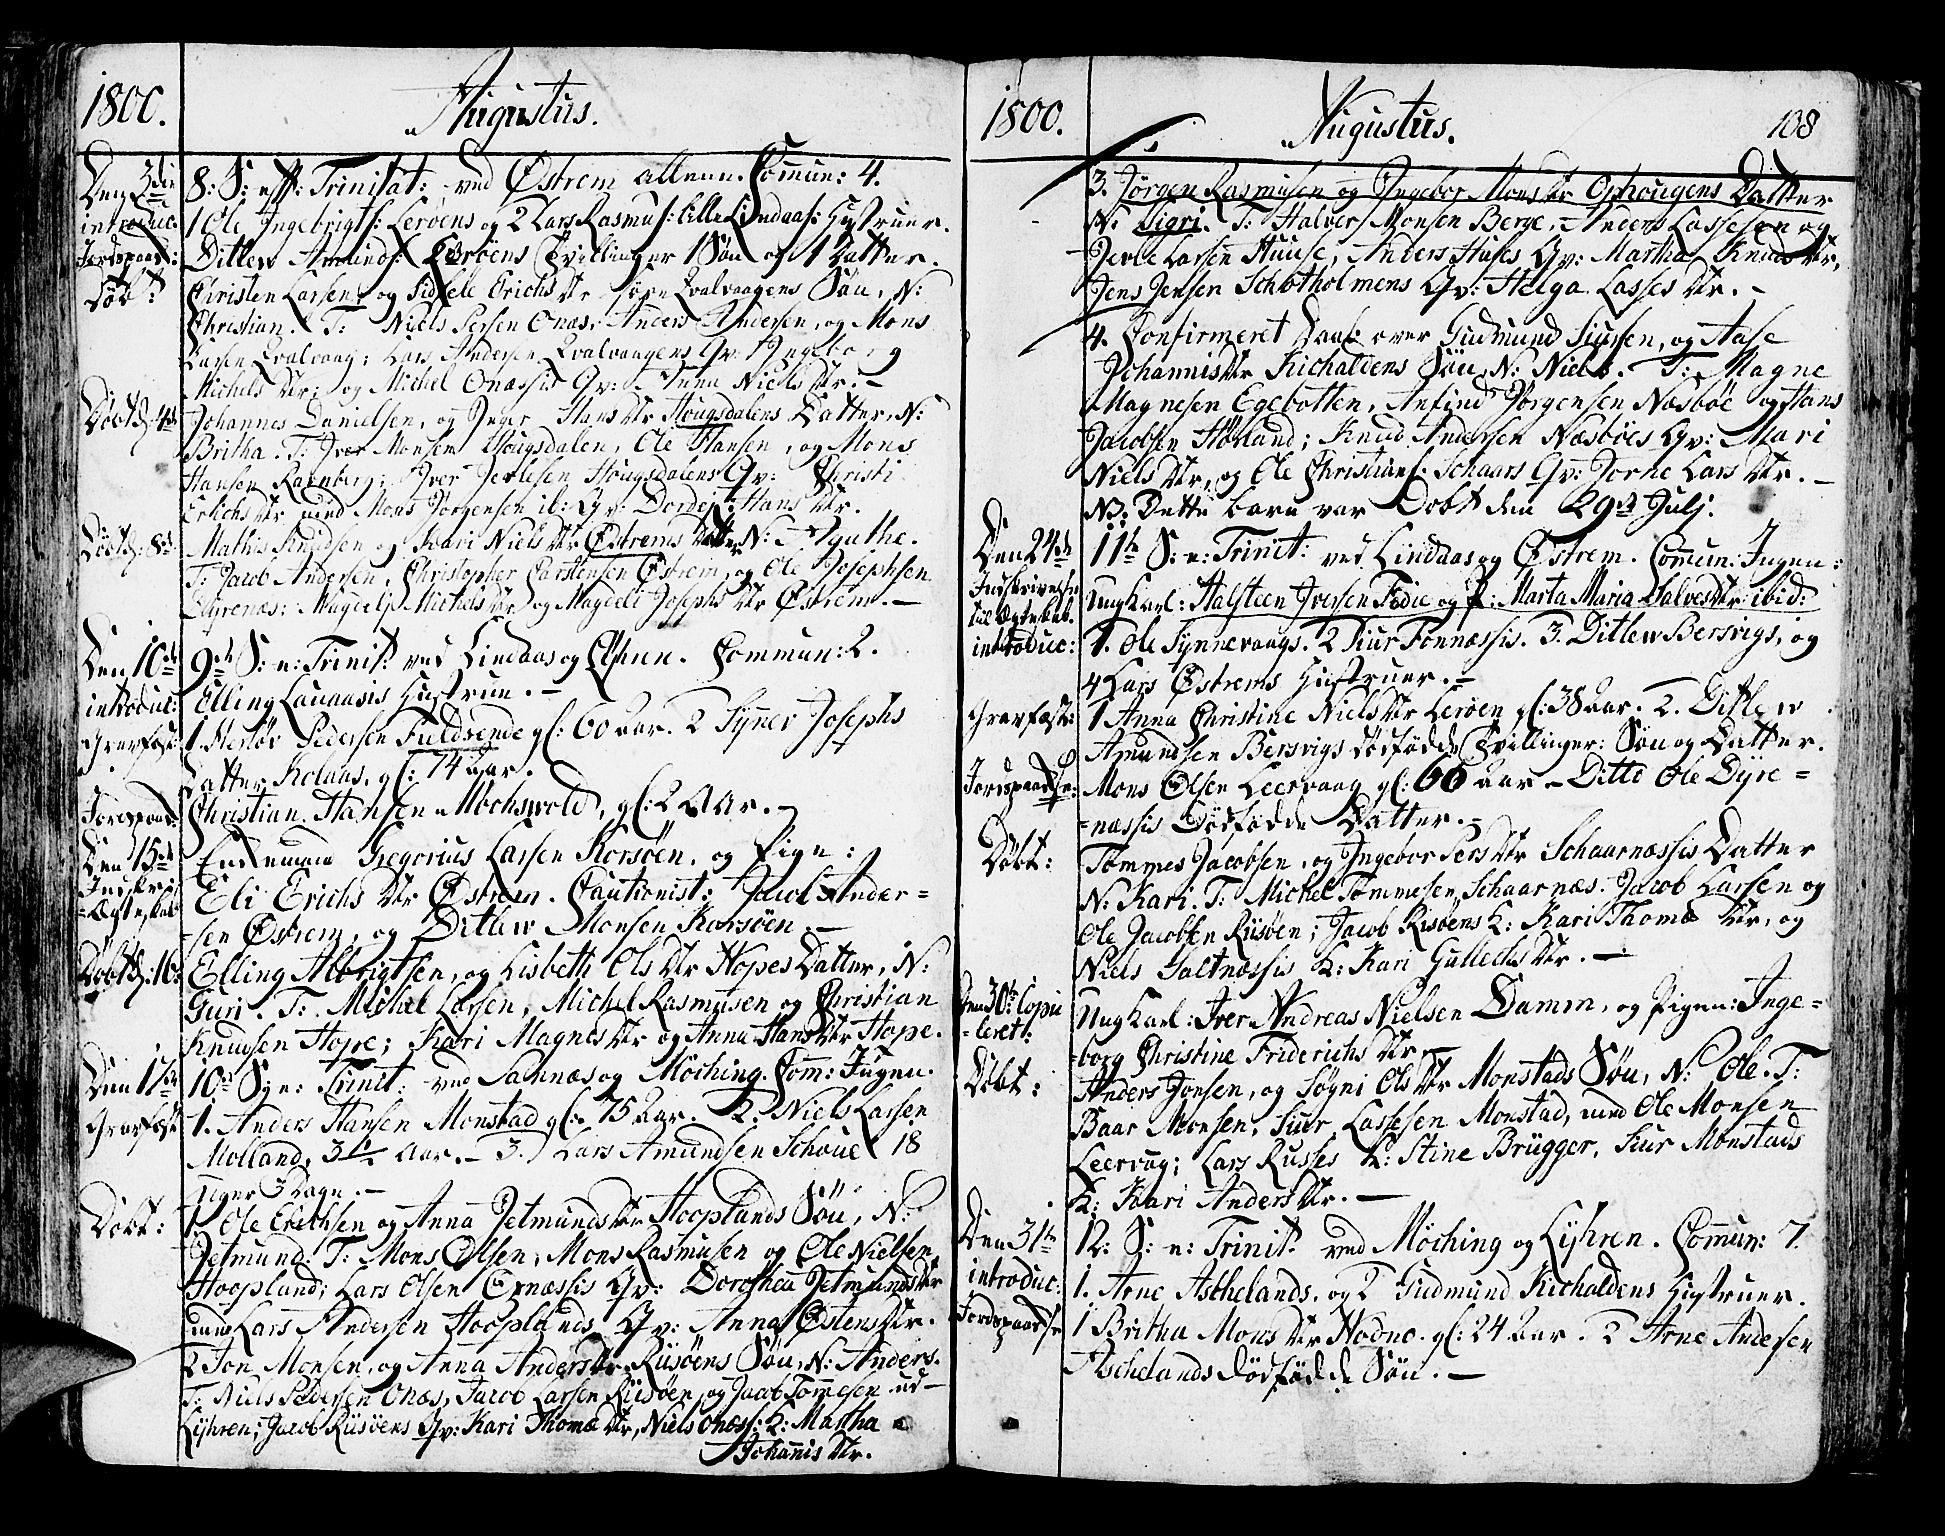 1800. Augustus.
Den 3die 8: S: eft: Trinitat: ved Østrem allene. Com̄un: 4.
introduc: 1 Ole Ingebrigts: Lerøens og 2 Lars Rasmus: Lille Lindaas: Hustruer.
Jordspaad: Ditlew Amunds: Lerøens Tvillinger 1 Søn og 1 Datter.
Døbt: Christen Larsen, og Sidsele Erichs Dtr Qvalvaagens Søn, N:
Christian. T: Niels Persen Onæs, Anders Andersen, og Mons
Larsen Qvalvaag; Lars Andersen Qvalvaagens Qv: Ingeborg
Michels Dtr; og Michel Onæssis Qv: Anna Niels Dtr. –
Døbt d: 4de Johannes Danielsen, og Inger Hans Dtr Hougsdalens Datter, N:
Britha. T: Iver Monsen Hougsdalen, Ole Hansen, og Mons
Hansen Ramberg; Iver Jetlesen Hougsdalens Qv: Christi
Erichs Dtr med Mons Jørgensen ib: Qv: Dordej Hans Dtr.
Døbt d: 8de Mathis Knudsen og Kari Niels Dtr Østrems Datter N: Agathe.
T: Jacob Andersen, Christopher Carstensen Østrem, og Ole Josephsen
Dyrenæs; Magdeli Michels Dtr og Magdeli Josephs Dtr Østrem. –
Den 10de 9de S: e: Trinit: ved Lindaas og . Commun: 2.
introduc: Elling Lauaasis Hustrue. –
Gravfæst: 1. Herlov Pedersen Fuldsende gl: 60 aar. 2 Synev Josephs
Datter Kolaas, gl: 74 aar.
Jordspaad: Christian Hansen Mochswold, gl: 2 Aar. –
Den 15de Enkemand Gregorius Larsen Korsøen, og Pige:
Indskri: Eli Erichs Dtr Østrem. Cautionist: Jacob Ander=
=Ægteskab sen Østrem, og Ditlew Monsen Korsøen. –
Døbt d: 16: Elling Albrigtsen, og Lisbeth Ols Dtr Hopes Datter, N:
Guri. T: Michel Larsen, Michel Rasmusen og Christian
Knudsen Hope; Kari Magnes Dtr og Anna Hans Dtr Hope.
Den 17de 10de S: e: Trinit: ved Sannæs og Møching. Com̄: Ingen.
Gravfæst 1. Anders Hansen Monstad gl: 75 Aar. 2. Niels Larsen
Molland, 3 1/2 Aar. – 3. Lars Amundsen Schouel 18
Uger 3 Dage. –
Døbt: 1. Ole Erichsen og Anna Jetmunds Dtr Hooplands Søn, N:
Jetmund. T: Mons Olsen, Mons Rasmusen og Ole Nielsen
Hoopland; Lars Olsen Ernæssis Qv: Dorothea Jetmunds Dtr
med Lars Andersen Hooplands Qv: Anna Østens Dtr.
2 Jon Monsen, og Anna Anders Dtr Riisøens Søn, N: Anders.
T: Niels Pedersen Onæs, Jacob Larsen Riisøen, og Jacob Tom̄esen ud-
Lyhren; Jacob Riisøens Qv: Kari Thomæ Dtr, Niels Onæss: K: Martha
Johannis Dtr.
1800. Augustus. 108
3. Jørgen Rasmusen og Ingebor Mons Dtr Ophougens Datter
N: Sigri. T: Halver Monsen Berge, Anders Lassesen og
Jetle Larsen Huuse, Anders Huses Qv: Martha Knuds Dtr,
Jens Jensen Schotholmens Qv: Helga Lasses Dtr. –
4. Confirmeret Daab over Gudmund Siursen, og Aase
Johannis Dtr Kichaldens Søn, N: Niels. T: Magne
Magnesen Egebotten, Anfind Jørgensen Næsbøe og Hans
Jacobsen Hølland; Knud Andersen Næsbøes Qv: Mari
Niels Dtr, og Ole Christians: Schaars Qv: Jorne Lars Dtr. –
NB. Dette barn var Døbt den 29de Julj.
Den 24de 11te S: e: Trinit: ved Lindaas og Østrem. Com̄un: Ingen:
Indskrivelse til Ægteskab. Ung Karl: Halsteen Iversen Fodie og P: Marta Maria Salves Dtr ibid:
introduc: 1. Ole Synnevaags. 2 Siur Fonnæssis. 3. Ditlew Bersvigs, og
4 Lars Østrems Hustruer. –
Gravfæst: 1 Anna Christine Niels Dtr Lerøen gl: 38 aar. 2. Ditlew
Amundsen Bersvigs dødfødde Tvillinger: Søn og Datter.
Jordspaadse: Mons Olsen Leervaag gl: 66 Aar – Ditto Ole Dyre=
=næssis Dødfødde Datter. –
Døbt: Tommes Jacobsen, og Ingebor Pers Dtr Schaarnæssis Datter
N: Kari. T: Michel Tommesen Schaarnæs. Jacob Larsen og
Ole Jacobsen Riisøen; Jacob Risøens K: Kari Thomæ Dtr, og
Niels Saltnæssis K: Kari Gullechs Dtr. –
Den 30te Copu= =leret: Ung Karl: Iver Andreas Nielsen Damm, og Pigen: Inge=
=borg Christine Friderichs Dtr. –
Døbt: Anders Jonsen, og Søgni Ols Dtr Monstads Søn, N: Ole. T:
Baar Monsen, Siur Lassesen Monstad, med Ole Monsen
Leervog; Lars Russes K: Stine Brügger, Siur Monstads
K: Kari Anders Dtr. –
Den 31te 12: S: e: Trinit: ved Møching og Lyhren. Com̄un: 7.
introduc: 1. Arne Aschelands, og 2 Gudmund Kichaldens Hustruer.
Jordspaadse 1 Britha Mons Dtr Hodne. gl: 24 Aar. 2 Arne Andersen
Aschelands dødfødde Søn. –